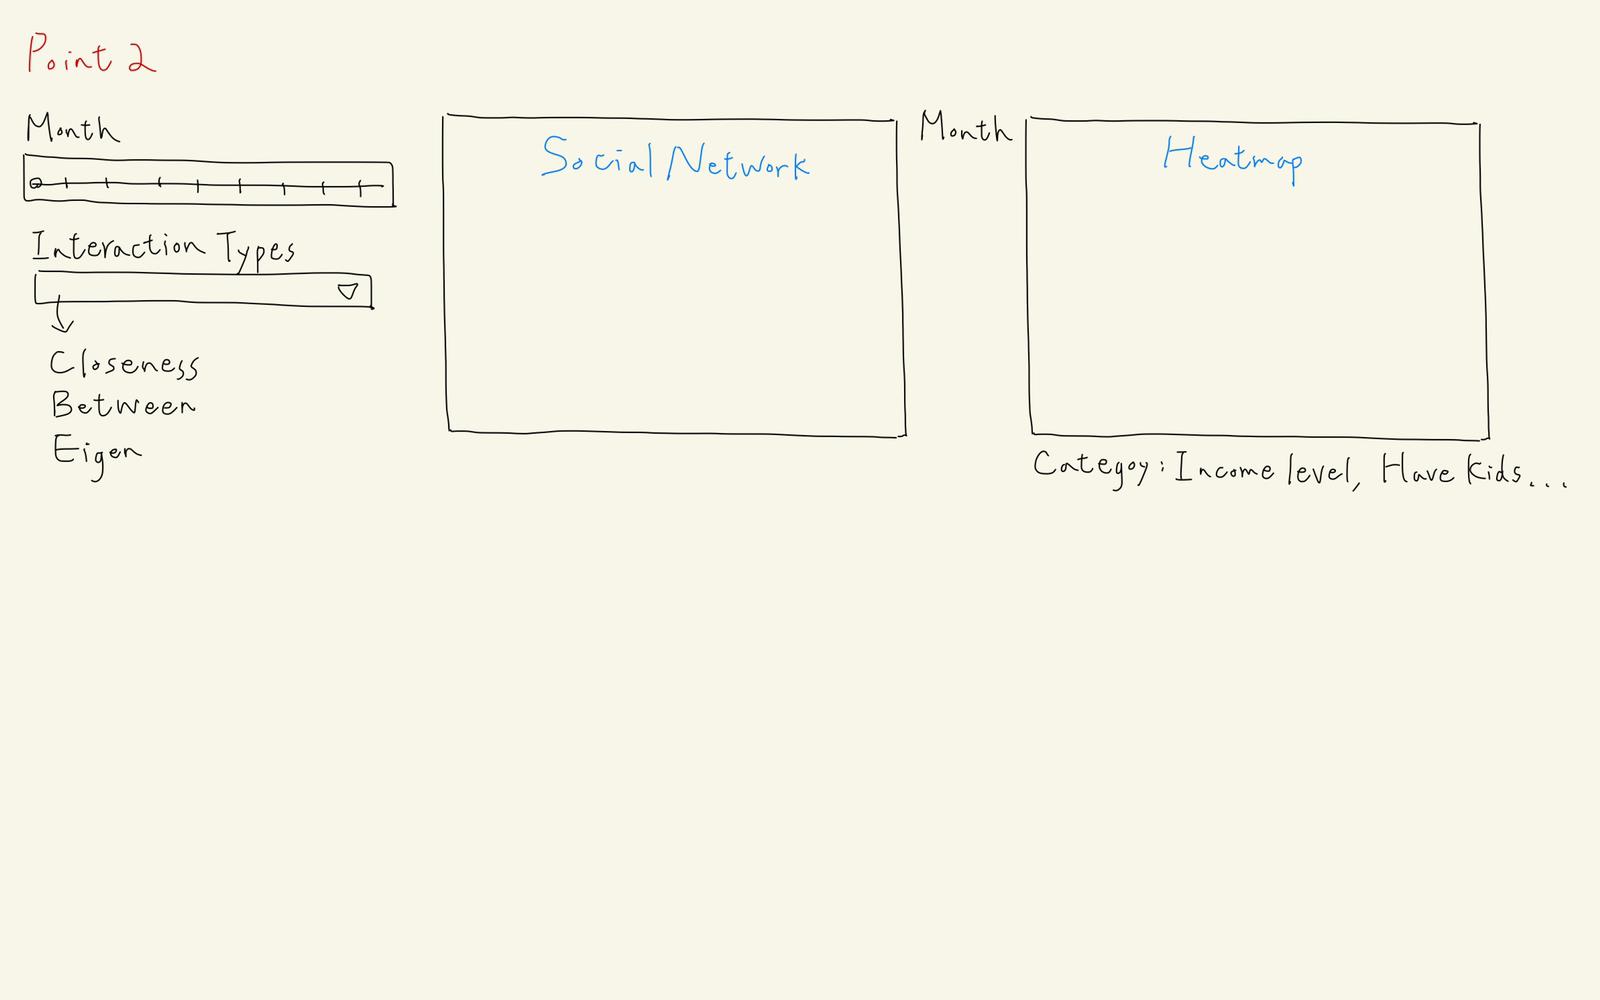 Point 2
Month
Interaction Types
Closeness
Between
Eigen
Social Network
Month
Heatmap
Categoy: Income level, Have kids...